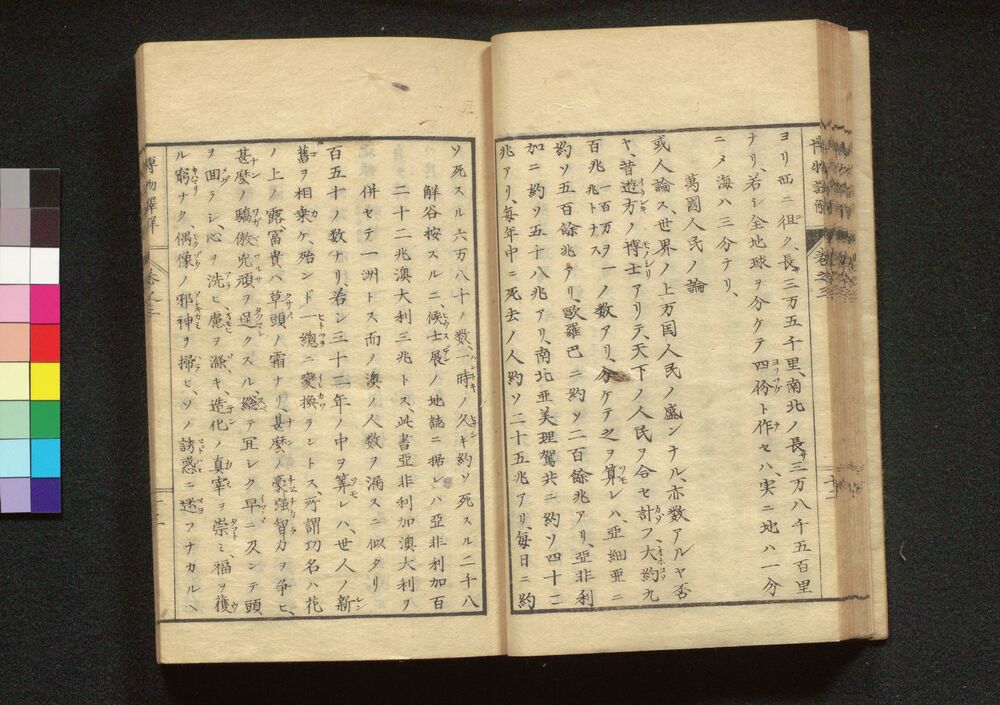 ヨリ西ニ徂ノ、長サ三万五千里、南北ノ長サ三万八千五百里
ナリ、若シ全地球ヲ分ケテ四份ト作セハ、実ニ地ハ一分
ニメ海ハ三分ナリ、
萬國人民ノ論
或人論ス、世界ノ上万国人民ノ盛ンナル、亦数アルヤ否
ヤ、昔遊方ノ博士アリテ、天下ノ人民ヲ合セ計フ、大約九
百兆一百万ヲ一兆トナスノ数アリ、分ケテ之ヲ算レハ、亜細亜ニ
約ソ五百餘兆アリ、歐羅巴ニ約ソ二百餘兆アリ、亞非利
加ニ約ソ五十八兆アリ、南北亜美理駕共ニ約ソ四十二
兆アリ、毎年中ニ死去ノ人約ソ二十五兆アリ、毎日ニ約
ソ死スル六万八千ノ数、一時ノ久キ約ソ死スル二千八
解谷按スルニ、候士展ノ地誌ニ据レハ亞非利加百
二十二兆澳大利三兆トス、此書亞非利加澳大利ヲ
併セテ一洲トス而ノ澳ノ人数ヲ漏スニ似タリ
百五十ノ数ナリ、若シ三十三年ノ中ヲ算レハ、世人ノ新
舊ヲ相乗ケ、殆ンド一總ニ変換ラレトス、所謂功名ハ花
ノ上ノ露、富貴ハ草頭ノ霜ナリ、甚麼ノ豪强智力ヲ争ヒ、
甚麼ノ驕傲兇頑ヲ逞クスル、總テ冝レク早ニ及ンテ頭
ヲ囬ラシ、心ヲ洗ヒ慮ヲ滌キ、造化ノ真宰ヲ崇ミ、福ヲ獲
ル窮ナク、偶像ノ邪神ヲ掃ヒ、ソノ誘惑ニ迷フナカルヘ
博物解詳
卷之三